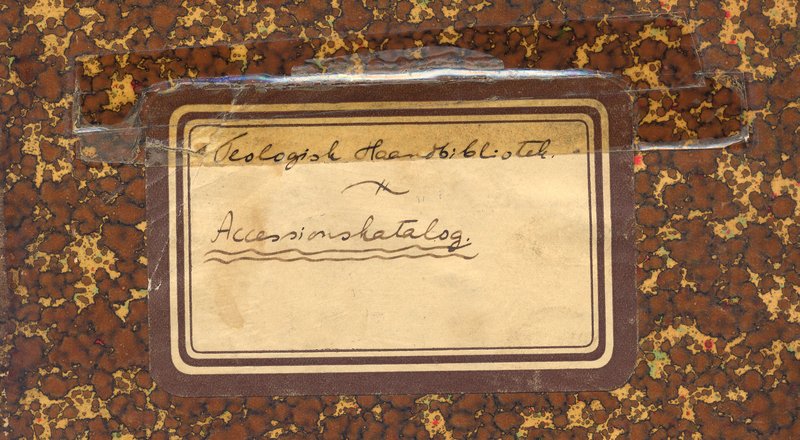 Teologisk Haandbibliotek.
Accessionskatalog.